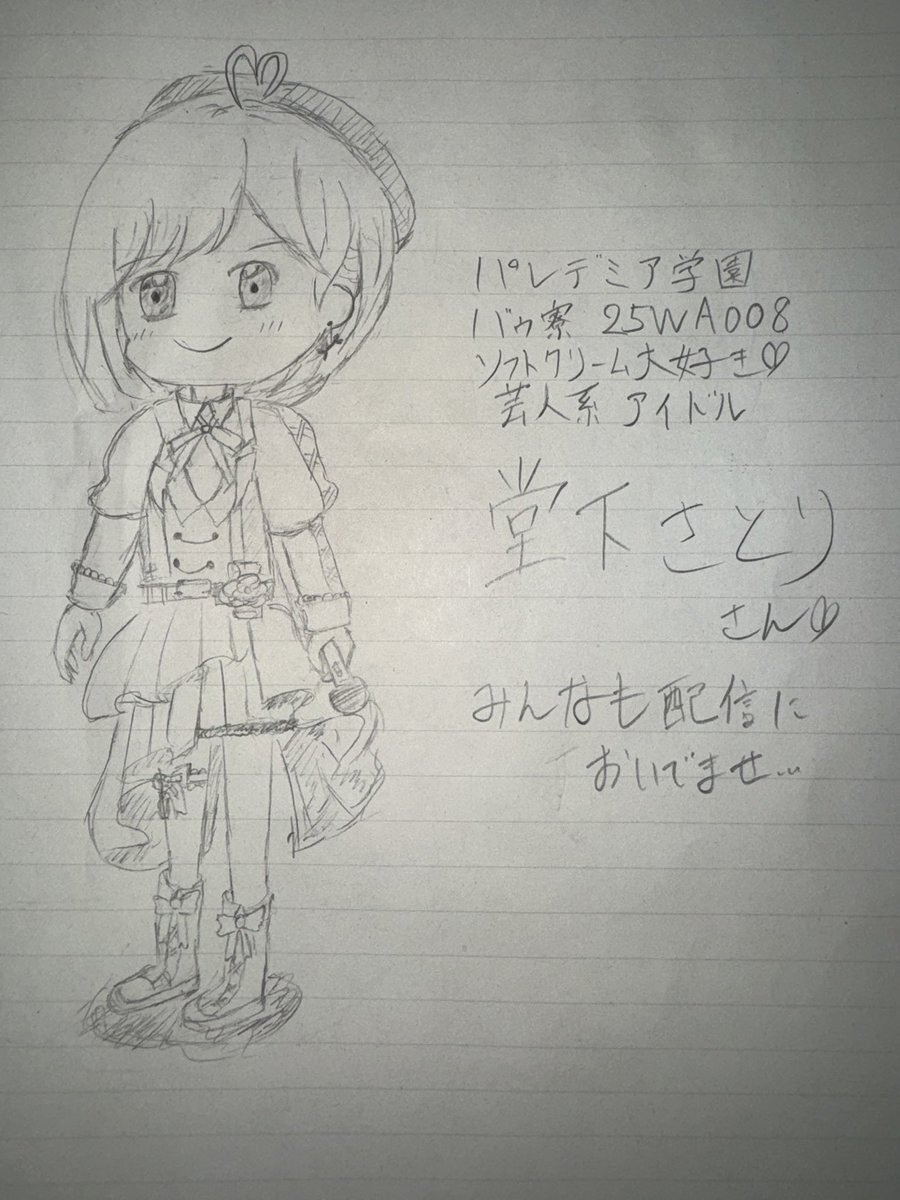 パレデミア学園
バゥ寮 25WA008
ソフトクリーム大好き♡
芸人系 アイドル
堂下さとり
さん♡
みんなも配信に
おいでませ…